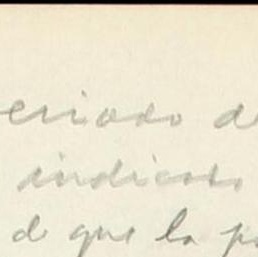 eriodo d
indicado
d que la p